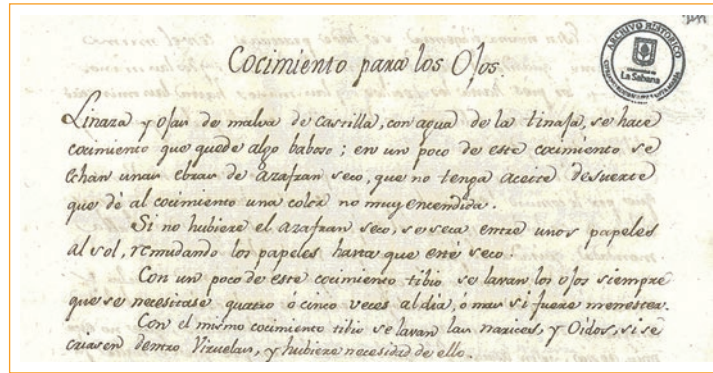 Cocimiento para los Ojos.
Linaza y ojas de malva de castilla, con agua de la tinaja, se hace
cocimiento que quede algo baboso; en un poco de este cocimiento se
echan unas ebras de azafran seco, que no tenga aceite desuerte
que dé al cocimiento una color no muy encendida.
Si no hubiere el azafran seco, se seca entre unos papeles
al sol, remudando los papeles hasta que esté seco.
Con un poco de este cocimiento tibio se lavan los ojos siempre
que se necesitase quatro ó cinco veces al dia, ó mas si fuere menester.
Con el mismo cocimiento tibio se lavan las narices, y Oidos, si se
criasen dentro Viruelas, y hubiere necesidad de ello.
ARCHIVO HISTÓRICO
La Sabana